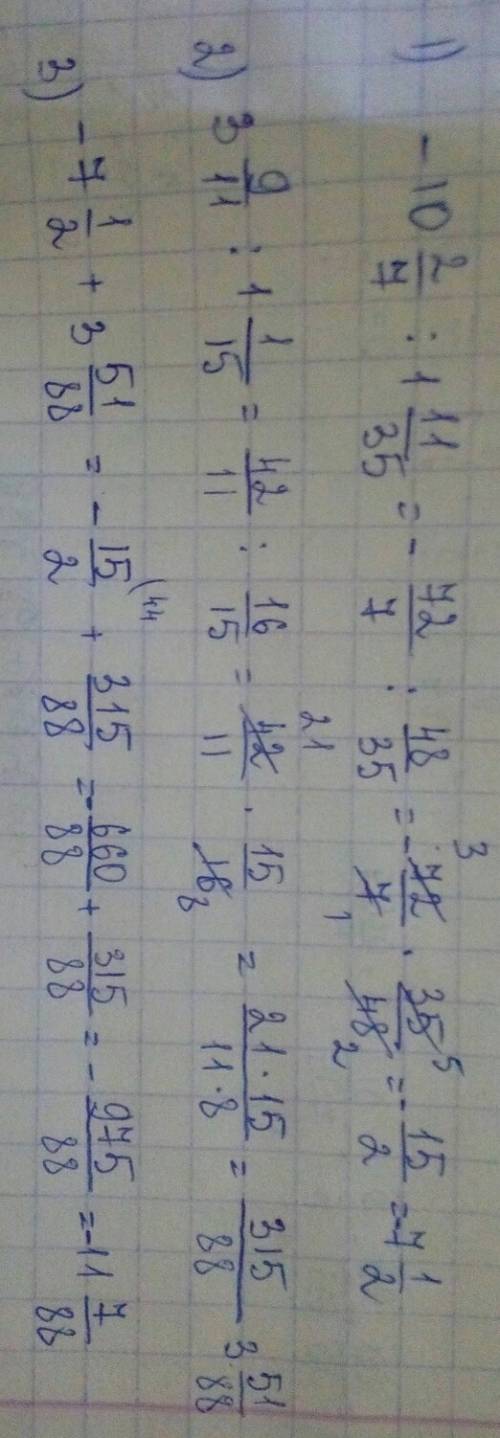 1) -10 2/7 : 1 11/35 = - 72/7 : 48/35 = - 72/7 3 1 · 35/48 5 2 = - 15/2 = -7 1/2
2) 3 9/11 : 1 1/15 = 42/11 : 16/15 = 42/11 21 · 15/16 8 = 21·15/11·8 = 315/88 3 51/88
3) -7 1/2 + 3 51/88 = - 15/2 (44 + 315/88 = - 660/88 + 315/88 = - 975/88 = -11 7/88